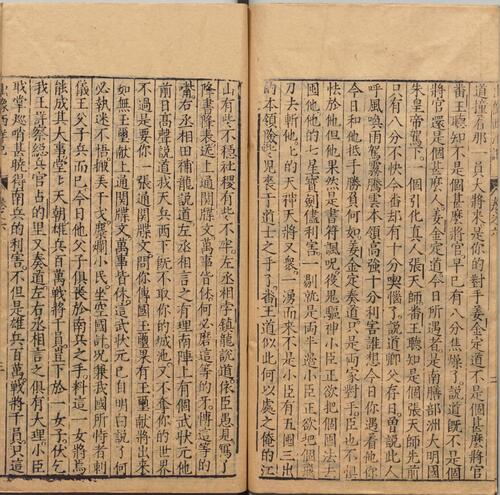 道撞着那一員大將來是你的對手姜金定道不是個甚麼將官
番王聽知不是個甚麼將官早已有八分焦燥了說道既不是個
將官還是個甚麼人姜金定道今日所遇者是南膳部洲大明國
朱皇帝駕下一個引化真人張天師番王聽知是個張天師先前
只有八分不快今番却有十分喫惱了說道卿父存日曾說此人
呼風喚雨駕霧騰雲本領高強十分利害誰想今日你遇着他你
今日和他抵手勝負何如姜金定奏道只是兩家對手臣也不惧
怯於他但他果是書符諷呪役是驅神小臣正欲把個囤法去
囤他他的七星寶劍儘利害一劍就是兩半邊小臣正欲把個飛
刀去斬他他的天神天將又衆一湧而來不是小臣有五囤三出
的本領險些兒喪于道士之手了番王道似此何以處之俺的江
山有些不穩社稷有些不牢左丞相孛鎮龍說道依臣愚見寫了
降書降表遞上通關牒文萬事皆休何必磨這等的牙博這等的
嘴右丞相田補龍說道左丞相言之有理南陣上有個武狀元他
前日高聲說道我天兵西下既不取你的城池又不奪你的世界
不過是要你一張通關牒文問你傳國玉璽果有玉璽獻將出來
如無玉璽獻上通關牒文萬事皆休這武狀元已自明白說了何
必執迷不悟搬弄干戈糜爛小民坐空國計况兼我國所恃者剌
儀王父子兵而已今日他父子俱喪於南兵之手料這一女將焉
能成其大事堂上天朝雄兵百萬戰將千員豈下於一女子伏乞
我王詳察總兵官占的里又奏道左右丞相言之俱有大理小臣
職掌巡哨甚曉得南兵的利害不但是雄兵百萬戰將千員只這